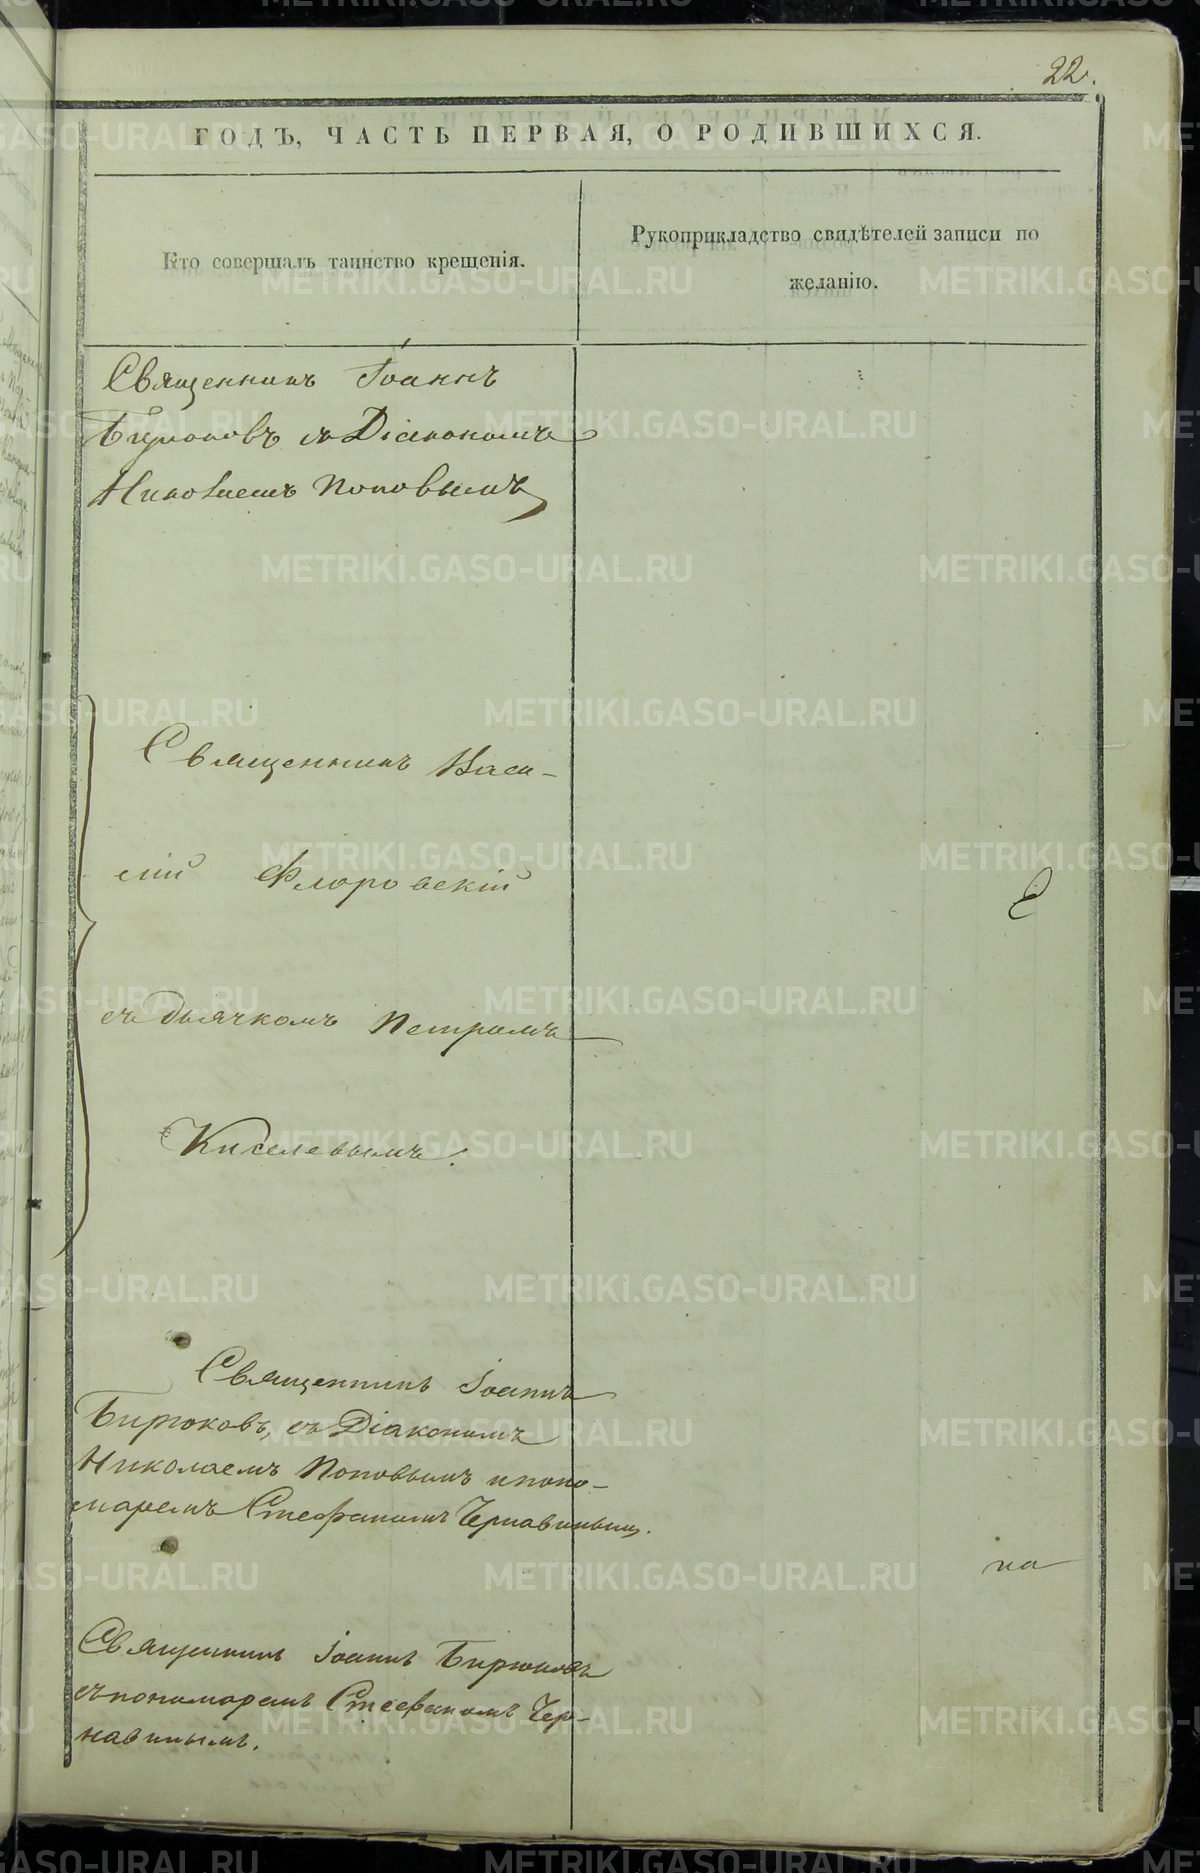 22.
ГОДЪ, ЧАСТЬ ПЕРВАЯ, О РОДИВШИХСЯ.
Кто совершалъ таинство крещенія.
Рукоприкладство свидѣтелей записи по
желанію.
Священникъ Іоаннъ
Бирюковъ съ Діакономъ
Николаемъ Поповымъ
Священникъ Васи-
лій Флоровскій
съ дьячкомъ Петромъ
Киселевымъ.
Священникъ Іоаннъ
Бирюковъ, съ Діакономъ
Николаемъ Поповымъ и поно-
маремъ Стефаномъ Чернавинымъ.
на
Священникъ Іоаннъ Бирюковъ
съ пономаремъ Стефаномъ Чер-
навинымъ.
METRIKI.GASO-URAL.RU